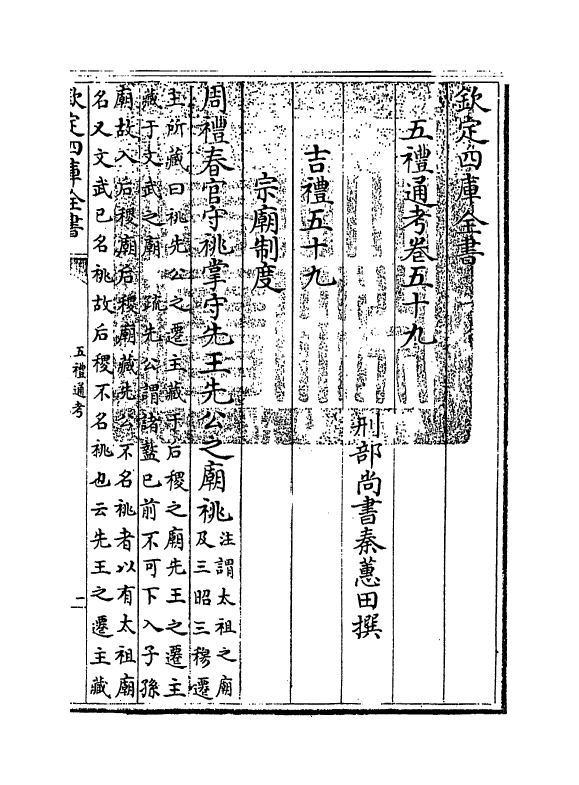 欽定四庫全書
五禮通考卷五十九
刑部尚書秦蕙田撰
吉禮五十九
宗廟制度
周禮春官守祧掌守先王先公之廟祧
注謂太祖之廟
及三昭三穆遷
主所藏曰祧先公之遷主藏于后稷之廟先王之遷主
藏于文武之廟 疏先公謂諸盩已前不可下入子孫
廟故入后稷廟后稷廟藏先公不名祧者以有太祖廟
名又文武已名祧故后稷不名祧也云先王之遷主藏
欽定四庫全書
五禮通考